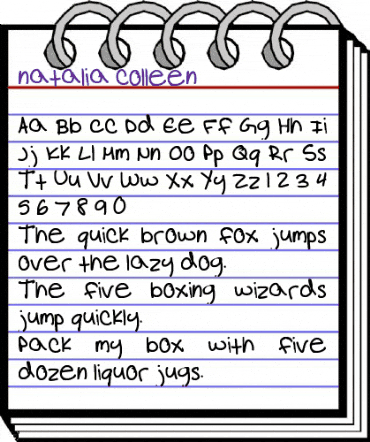 natalia colleen
Aa Bb Cc Dd Ee Ff Gg Hh Ii
Jj Kk Ll Mm Nn Oo Pp Qq Rr Ss
Tt Uu Vv Ww Xx Yy Zz 1 2 3 4
5 6 7 8 9 0
The quick brown fox jumps
over the lazy dog.
The five boxing wizards
jump quickly.
Pack my box with five
dozen liquor jugs.